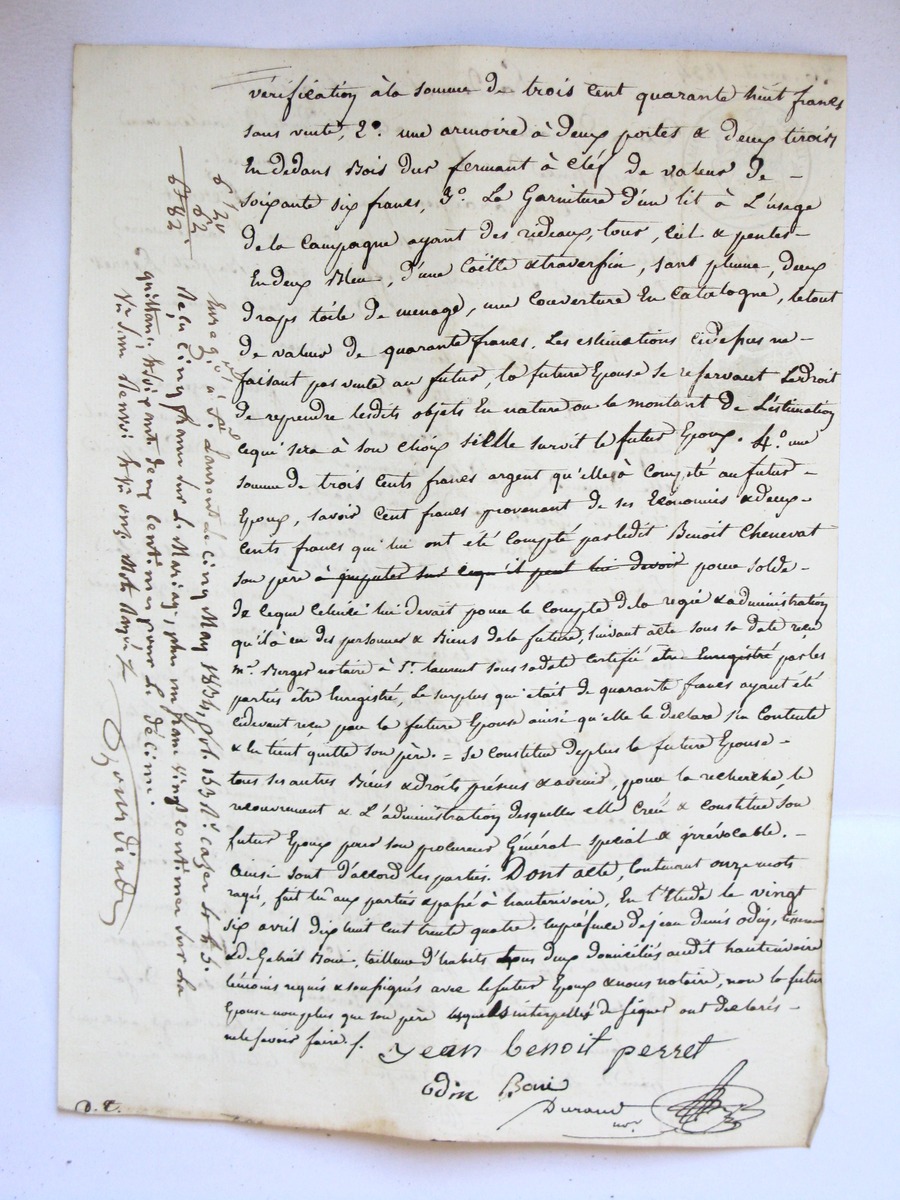 vérification à la somme de trois cent quarante huit francs
sans vente, 2º. une armoire à deux portes & deux tiroirs
En dedans Bois dur fermant à Clef de valeur de –
soixante six francs, 3º. La Garniture d'un lit à L'usage
de la Campagne ayant des rideaux, tour, Ciel & pentes –
En deux Bleu, d'une Coëtte & traversin, sans plume, deux
draps toile de menage, une couverture En Catalogne, le tout
de valeur de quarante francs. Les estimations cidessus ne –
faisant pas vente au futur, la future Epouse se reservant Le droit
de reprendre lesdits objets En nature ou le montant de L'estimation
cequi sera à son choix si Elle survit le futur Epoux. 4º. une
somme de trois Cents francs argent qu'elle à Compté au futur –
Epoux, savoir Cent francs provenant de ses Economies & deux –
Cents francs qui lui ont été Compté par ledit Benoit Chenevat
son père à imputer sur cequ'il peut lui devoir pour solde –
de ceque celuici lui devrait pour le Compte de la regie & administration
qu'il à eu des personnes & Biens de la future, suivant acte sous sa date reçu
Mᵉ. Berger notaire à Sᵗ. laurent sous sa date certifié être Enregistré par les
parties être Enregistré, Le surplus qui était de quarante francs ayant été
cidevant reçu par la future Epouse ainsi qu'elle le declare s'en Contente
& En tient quitte son père. = Se Constitue deplus la future Epouse –
tous ses autres Biens & droits présens & avenir, pour la recherche, le
recouvrement & L'administration desquelles elle Crée & constitue son
futur Epoux pour son procureur Général special & irrévocable. –
Ainsi sont d'accord les parties. Dont acte, Contenant onze mots
rayés, fait lu aux parties & passé à hauterivoire, En l'Etude le vingt
six avril dix huit Cent trente quatre. En présence de jean denis odin,
& de Gabriel Boni, tailleur d'habits tous deux domiciliés audit hauterivoire
témoins requis & soussignés avec le futur Epoux & nous notaire, non la future
Epouse non plus que son père lesquels interpellés de signer ont déclarés –
ne le savoir faire /.
jean benoit perret
Odin Boni
Durand
nʳᵉ
D. T.
6 20
62
6 82
Enregiᵗʳé à Sᵗ Laurent le Cinq May 1834, fol. 153 Rº Cazes 4 & 5.
Reçu Cinq francs sur le Mariage, plus un franc vingt centimes sur la
quittance & soixante deux centimes pour le décime.